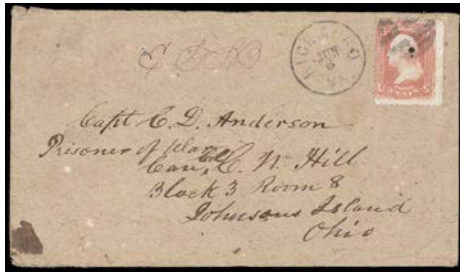 RICHMOND
JUN
VA.
U S
Capt C. D. Anderson
Prisoner of War
Care Col C. W. Hill
Block 3 Room 8
Johnsons Island
Ohio